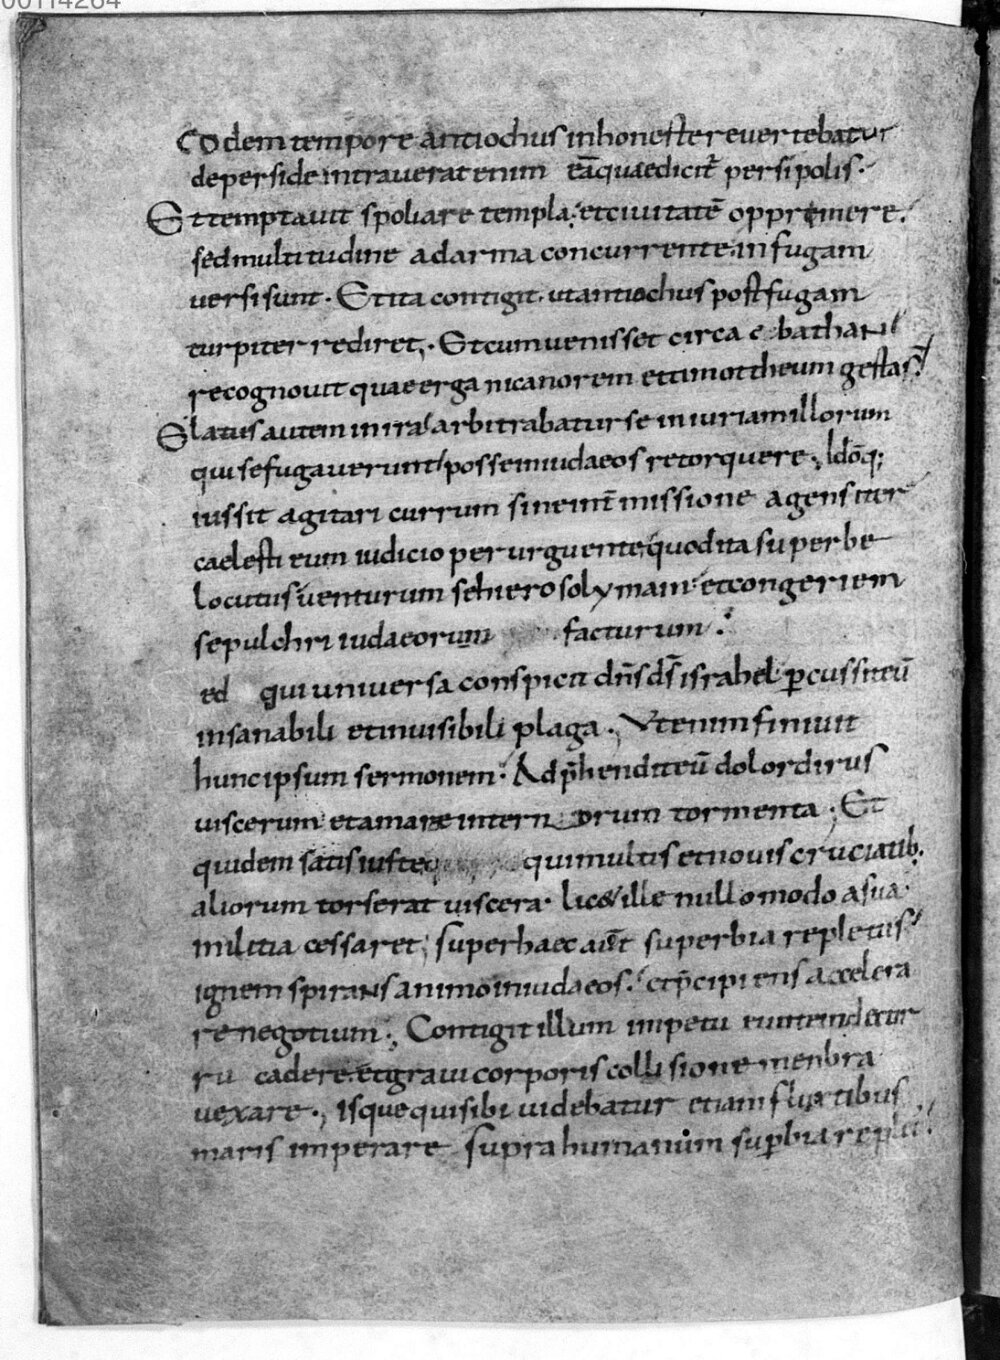 00114264
Eodem tempore antiochus inhoneste revertebatur
de perside intraverat enim eā quae dicit̄ persipolis·
Et temptavit spoliare templa; et civitatē oppremere.
sed multitudine ad arma concurrente in fugam
versi sunt· Et ita contigit ut antiochus post fugam
turpiter rediret,· Et cum venisset circa e bathan
recognovit quae erga nicanorem et timottheum gesta s̄
Elatus autem in ira arbitrabatur se iniuriam illorum
qui se fugaverunt posse in iudaeos retorquere·, Idōq;
iussit agitari currum sine int̄missione agens iter
caelesti eum iudicio perurguente quod ita superbe
locutus venturum se hierosolymam et congeriem
sepulchri iudaeorum facturum·
ed qui universa conspicit dn̄s ds̄ israhel percussit eū
insanabili et invisibili plaga·, Ut enim finivit
hunc ipsum sermonem· Adp̄hendit eū dolor dirus
viscerum et amare intern orum tormenta·, Et
quidem satis iuste q qui multis et novis cruciatib.
aliorum torserat viscera· licet ille nullo modo a sua
militia cessaret; super haec aūt superbia repletus
ignem spirans animo in iudaeos· et p̄cipiens accelera
re negotium·, Contigit illum impetu euntem de cur
ru cadere et gravi corporis collisione menbra
vexare·, Isque qui sibi videbatur etiam fluctibus
maris imperare supra humanum sup̄bia replet